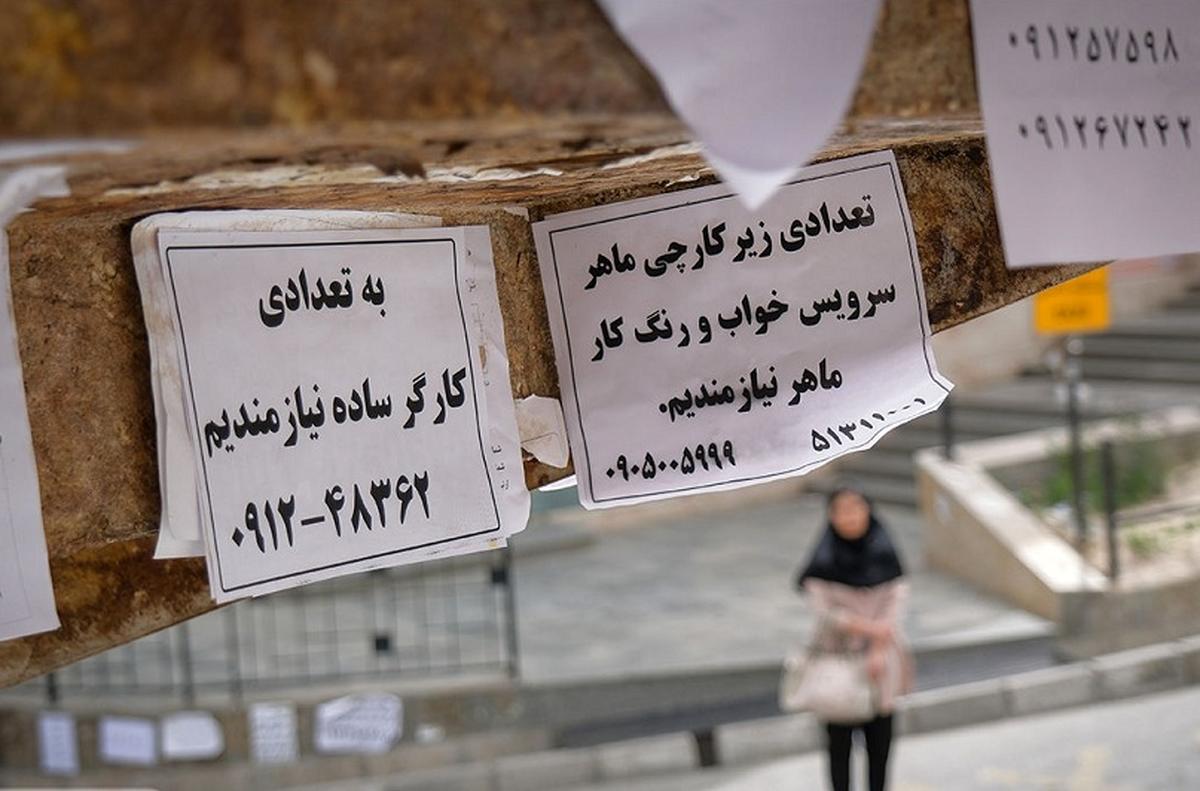 به تعدادی
کارگر ساده نیازمندیم
۰۹۱۲-۴۸۳۶۲
تعدادی زیر کارچی ماهر
سرویس خواب و رنگ کار
ماهر نیازمندیم.
۵۱۳۱۱۰۰۱
۰۹۰۵۰۰۵۹۹۹
۰۹۱۲۵۷۵۹۸
۰۹۱۲۶۷۲۴۲